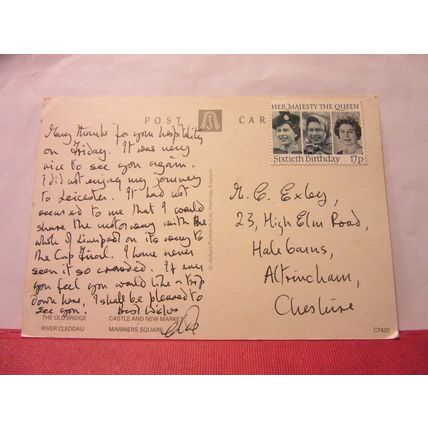 POST CARD
HER MAJESTY THE QUEEN
Sixtieth Birthday 17p
Many thanks for your hospitality
on Friday. It was very
nice to see you again.
I did not enjoy my journey
to Leicester. It had not
occured to me that I would
share the motorway with the
whole of Liverpool on its way to
the Cup Final. I have never
seen it so crowded. If ever
you feel you would like a trip
down here, I shall be pleased to
see you. Best wishes
M. C. Exley,
23, High Elm Road,
Halebarns,
Altrincham,
Cheshire
THE OLD BRIDGE
RIVER CLEDDAU
CASTLE AND NEW MARKET
MARINERS SQUARE
C7420